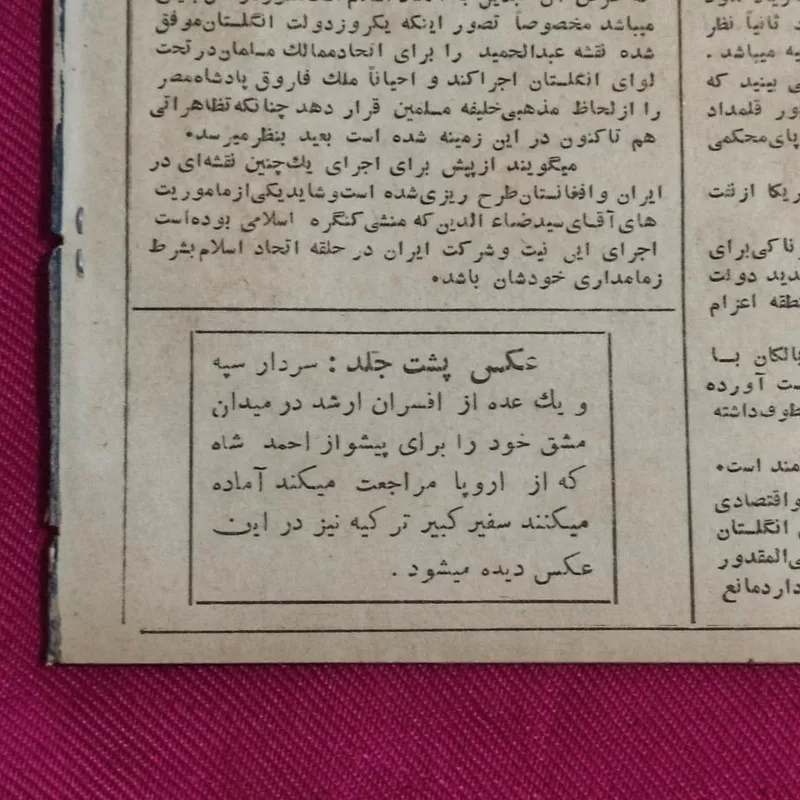 میباشد مخصوصاً تصور اینکه یکروز دولت انگلستان موفق
شده نقشه عبدالحمید را برای اتحاد ممالک مسلمان در تحت
لوای انگلستان اجرا کند و احیاناً ملک فاروق پادشاه مصر
را از لحاظ مذهبی خلیفه مسلمین قرار دهد چنانکه تظاهراتی
هم تاکنون در این زمینه شده است بعید بنظر میرسد.
میگویند از پیش برای اجرای یک چنین نقشه‌ای در
ایران و افغانستان طرح ریزی شده است و شاید یکی از ماموریت
های آقای سید ضیاء الدین که منشی کنگره اسلامی بوده است
اجرای این نیت و شرکت ایران در حلقه اتحاد اسلام بشرط
زمامداری خودشان باشد.
عکس پشت جلد : سردار سپه
و یک عده از افسران ارشد در میدان
مشق خود را برای پیشواز احمد شاه
که از اروپا مراجعت میکند آماده
میکنند سفیر کبیر ترکیه نیز در این
عکس دیده میشود .
ثانیاً نظر
یه میباشد .
ی بینید که
ور قلمداد
پای محکمی
ریکا از نفت
ناکی برای
دید دولت
طقه اعزام
بالکان بــا
ست آورده
ظوف داشته
مند است.
و اقتصادی
انگلستان
ی المقدور
دارد مانع